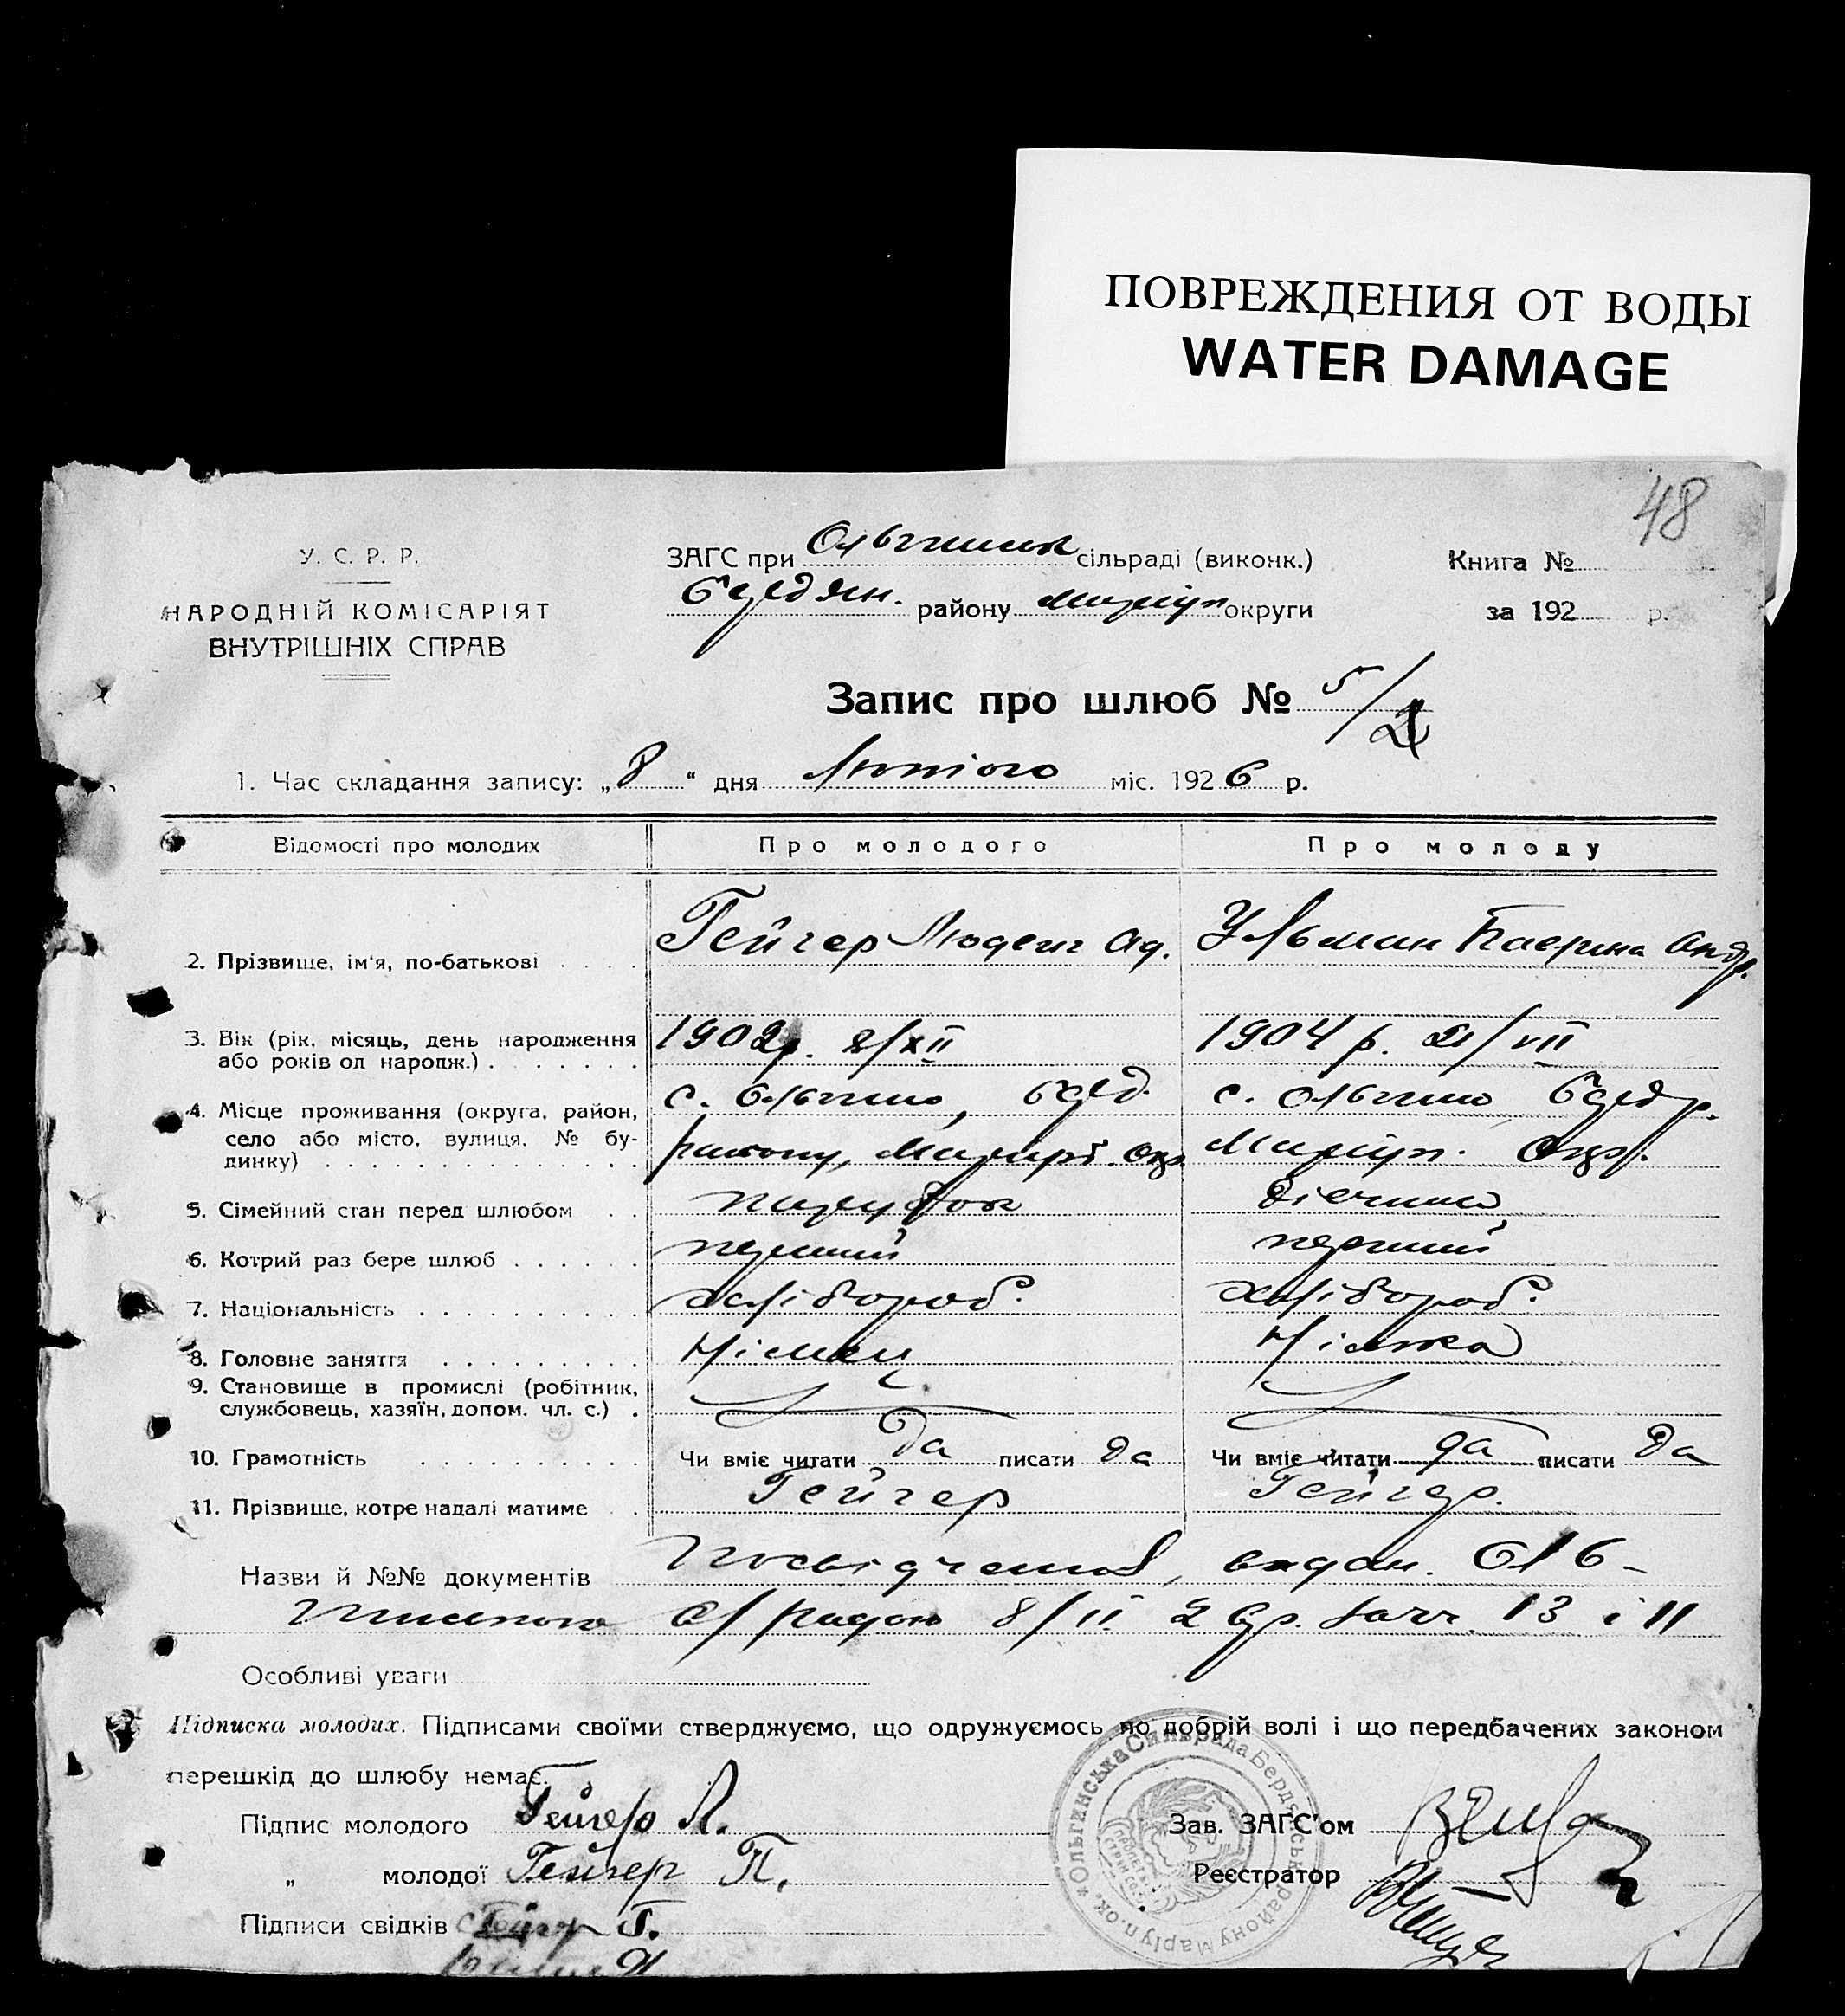 ПОВРЕЖДЕНИЯ ОТ ВОДЫ
WATER DAMAGE
48
У. С. Р. Р.
НАРОДНІЙ КОМІСАРІЯТ
ВНУТРІШНІХ СПРАВ
ЗАГС при сільраді (виконк.)
Бердян. району Маріуп округи
Книга №
за 192 р.
Запис про шлюб № 5/
1. Час складання запису: „8“ дня Лютого міс. 1926 р.
Відомості про молодих Про молодого Про молоду
2. Прізвище, ім'я, по-батькові . . . . Гейгер Людвиг Ад. Ульман Андр.
3. Вік (рік, місяць, день народження 1902р. 2/XII 1904 р. /VII
або років од народж.) . . . . . . .
4. Місце проживання (округа, район, с. Ольгино, Берд. с. Ольгино Берд р.
село або місто, вулиця, № бу- району, Маріуп. окр. Маріуп. Окр.
динку) . . . . . . . . . . . . . .
5. Сімейний стан перед шлюбом . . парубок дівчина
6. Котрий раз бере шлюб . . . . . . перший перший
7. Національність . . . . . . . . . . хлібороб. хлібороб.
8. Головне заняття . . . . . . . . . Німец Німка
9. Становище в промислі (робітник,
службовець, хазяїн, допом. чл. с.) .
10. Грамотність . . . . . . . . . . Чи вміє читати да писати да Чи вміє читати да писати да
11. Прізвище, котре надалі матиме . . Гейгер Гейгер.
Назви й №№ документів Посвідчення, видан. Оль-
с/радою 8/II 26р. за №№ 13 і 11
Особливі уваги
Підписка молодих. Підписами своїми стверджуємо, що одружуємось по добрій волі і що передбачених законом
перешкід до шлюбу немає.
Підпис молодого Гейгер Л.
„ молодої Гейгер П.
Підписи свідків
Зав. ЗАГС'ом
Реєстратор
Ольгинська Сильрада Бердянськ. району Маріуп. ок.